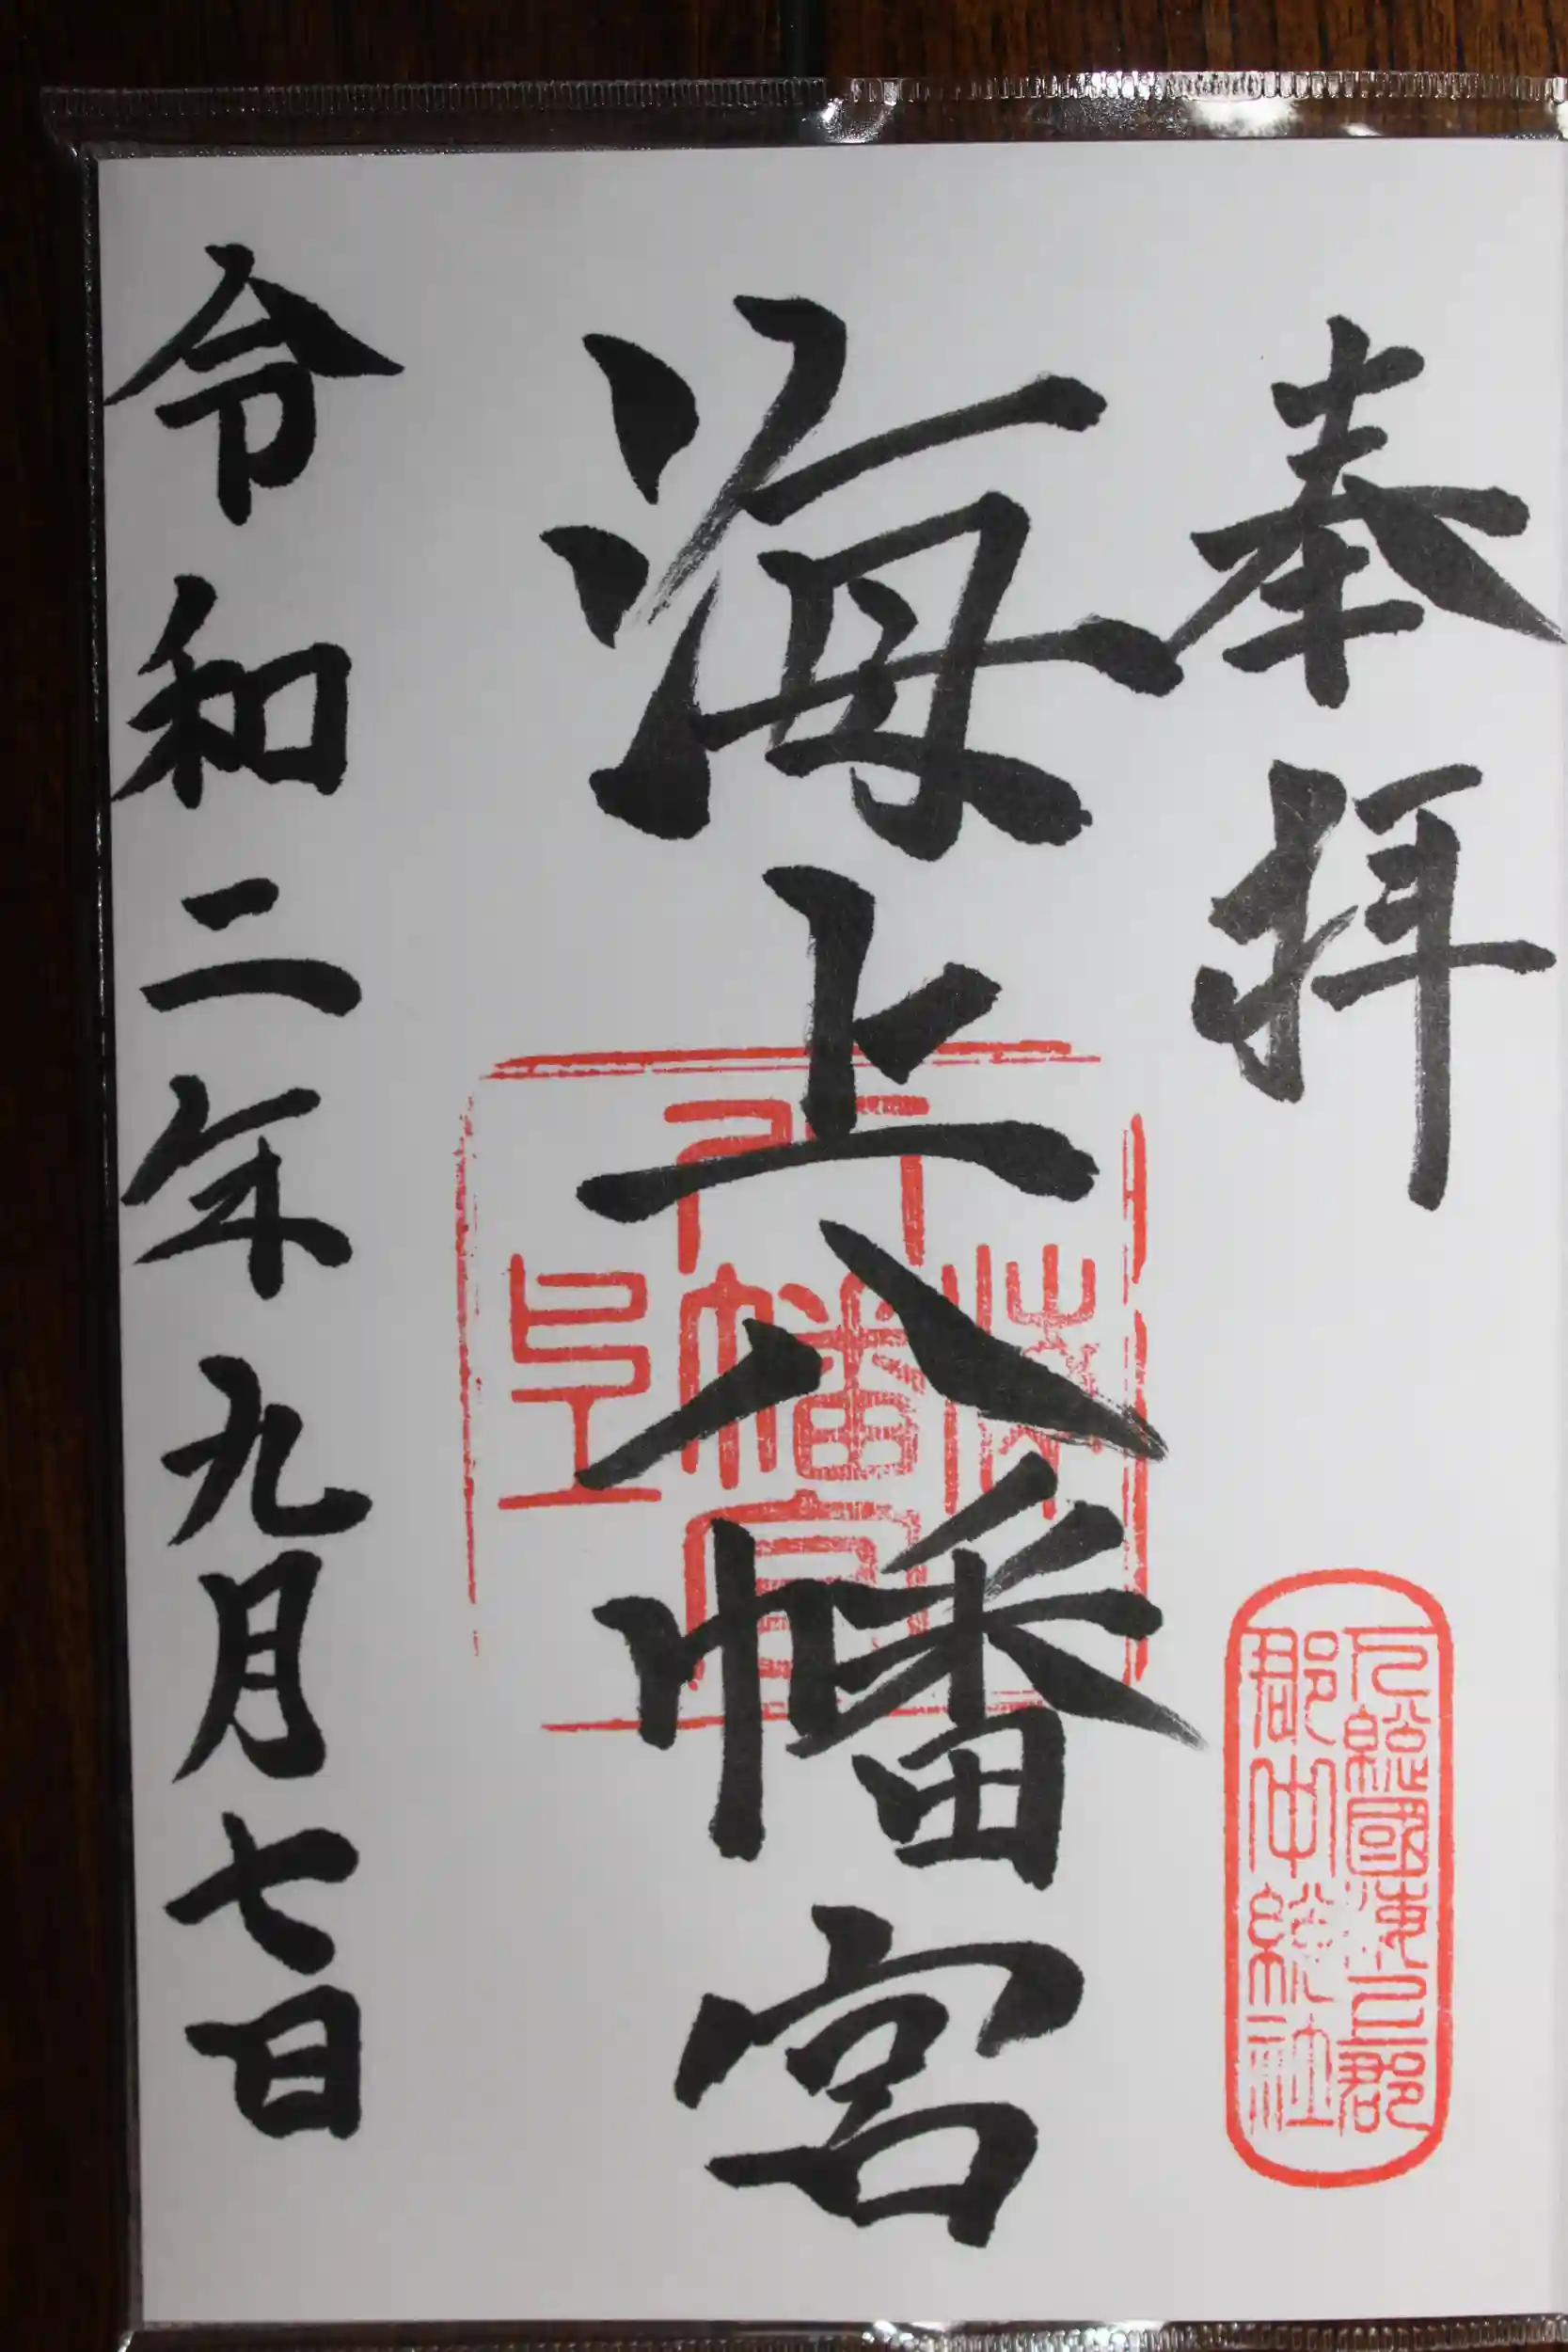 奉拝
下総國海上郡
郡中総社
海上八幡宮
令和二年九月七日